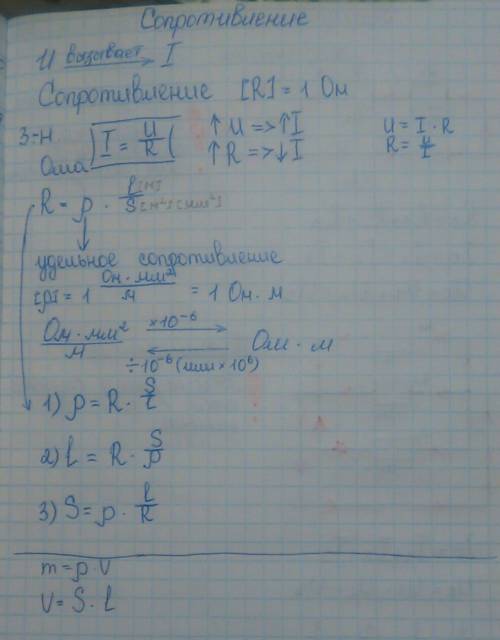 Сопротивление
U вызывает→ I
Сопротивление [R] = 1 Ом
З-н Ома I = U/R ↑U => ↑I U = I · R
↑R => ↓I R = U/I
R = ρ · l[м]/S[м²][мм²]
↓
удельное сопротивление
[ρ] = 1 Ом · мм²/м = 1 Ом · м
Ом · мм²/м ×10⁻⁶→ Ом · м
← ÷10⁻⁶ (или ×10⁶)
1) ρ = R · S/l
2) l = R · S/ρ
3) S = ρ · l/R
m = ρ · V
V = S · l